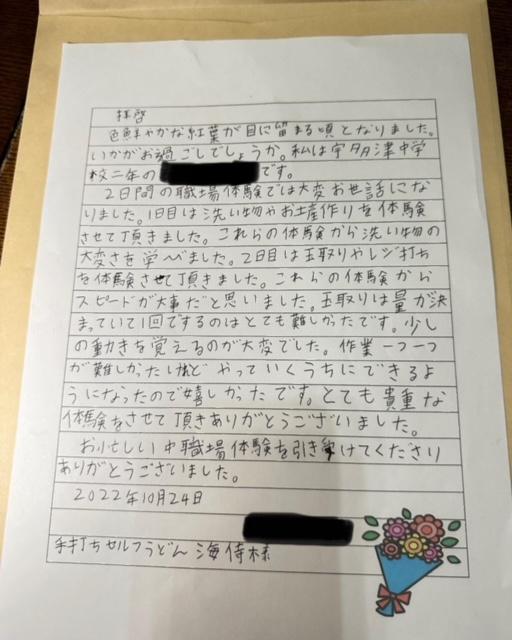 拝啓
色鮮やかな紅葉が目に留まる頃となりました。
いかがお過ごしでしょうか。私は宇多津中学
校二年の です。
2日間の職場体験では大変お世話にな
りました。1日目は洗い物やお土産作りを体験
させて頂きました。これらの体験から洗い物の
大変さを学べました。2日目は玉取りやレジ打ち
を体験させて頂きました。これらの体験から
スピードが大事だと思いました。玉取りは量が決
まっていて1回でするのはとても難しかったです。少し
の動きを覚えるのが大変でした。作業一つ一つ
が難しかったけど やっていくうちにできるよ
うになったので嬉しかったです。とても貴重な
体験をさせて頂きありがとうございました。
お忙しい中職場体験を引き受けてくださり
ありがとうございました。
2022年10月24日
手打ちセルフうどん 海侍様